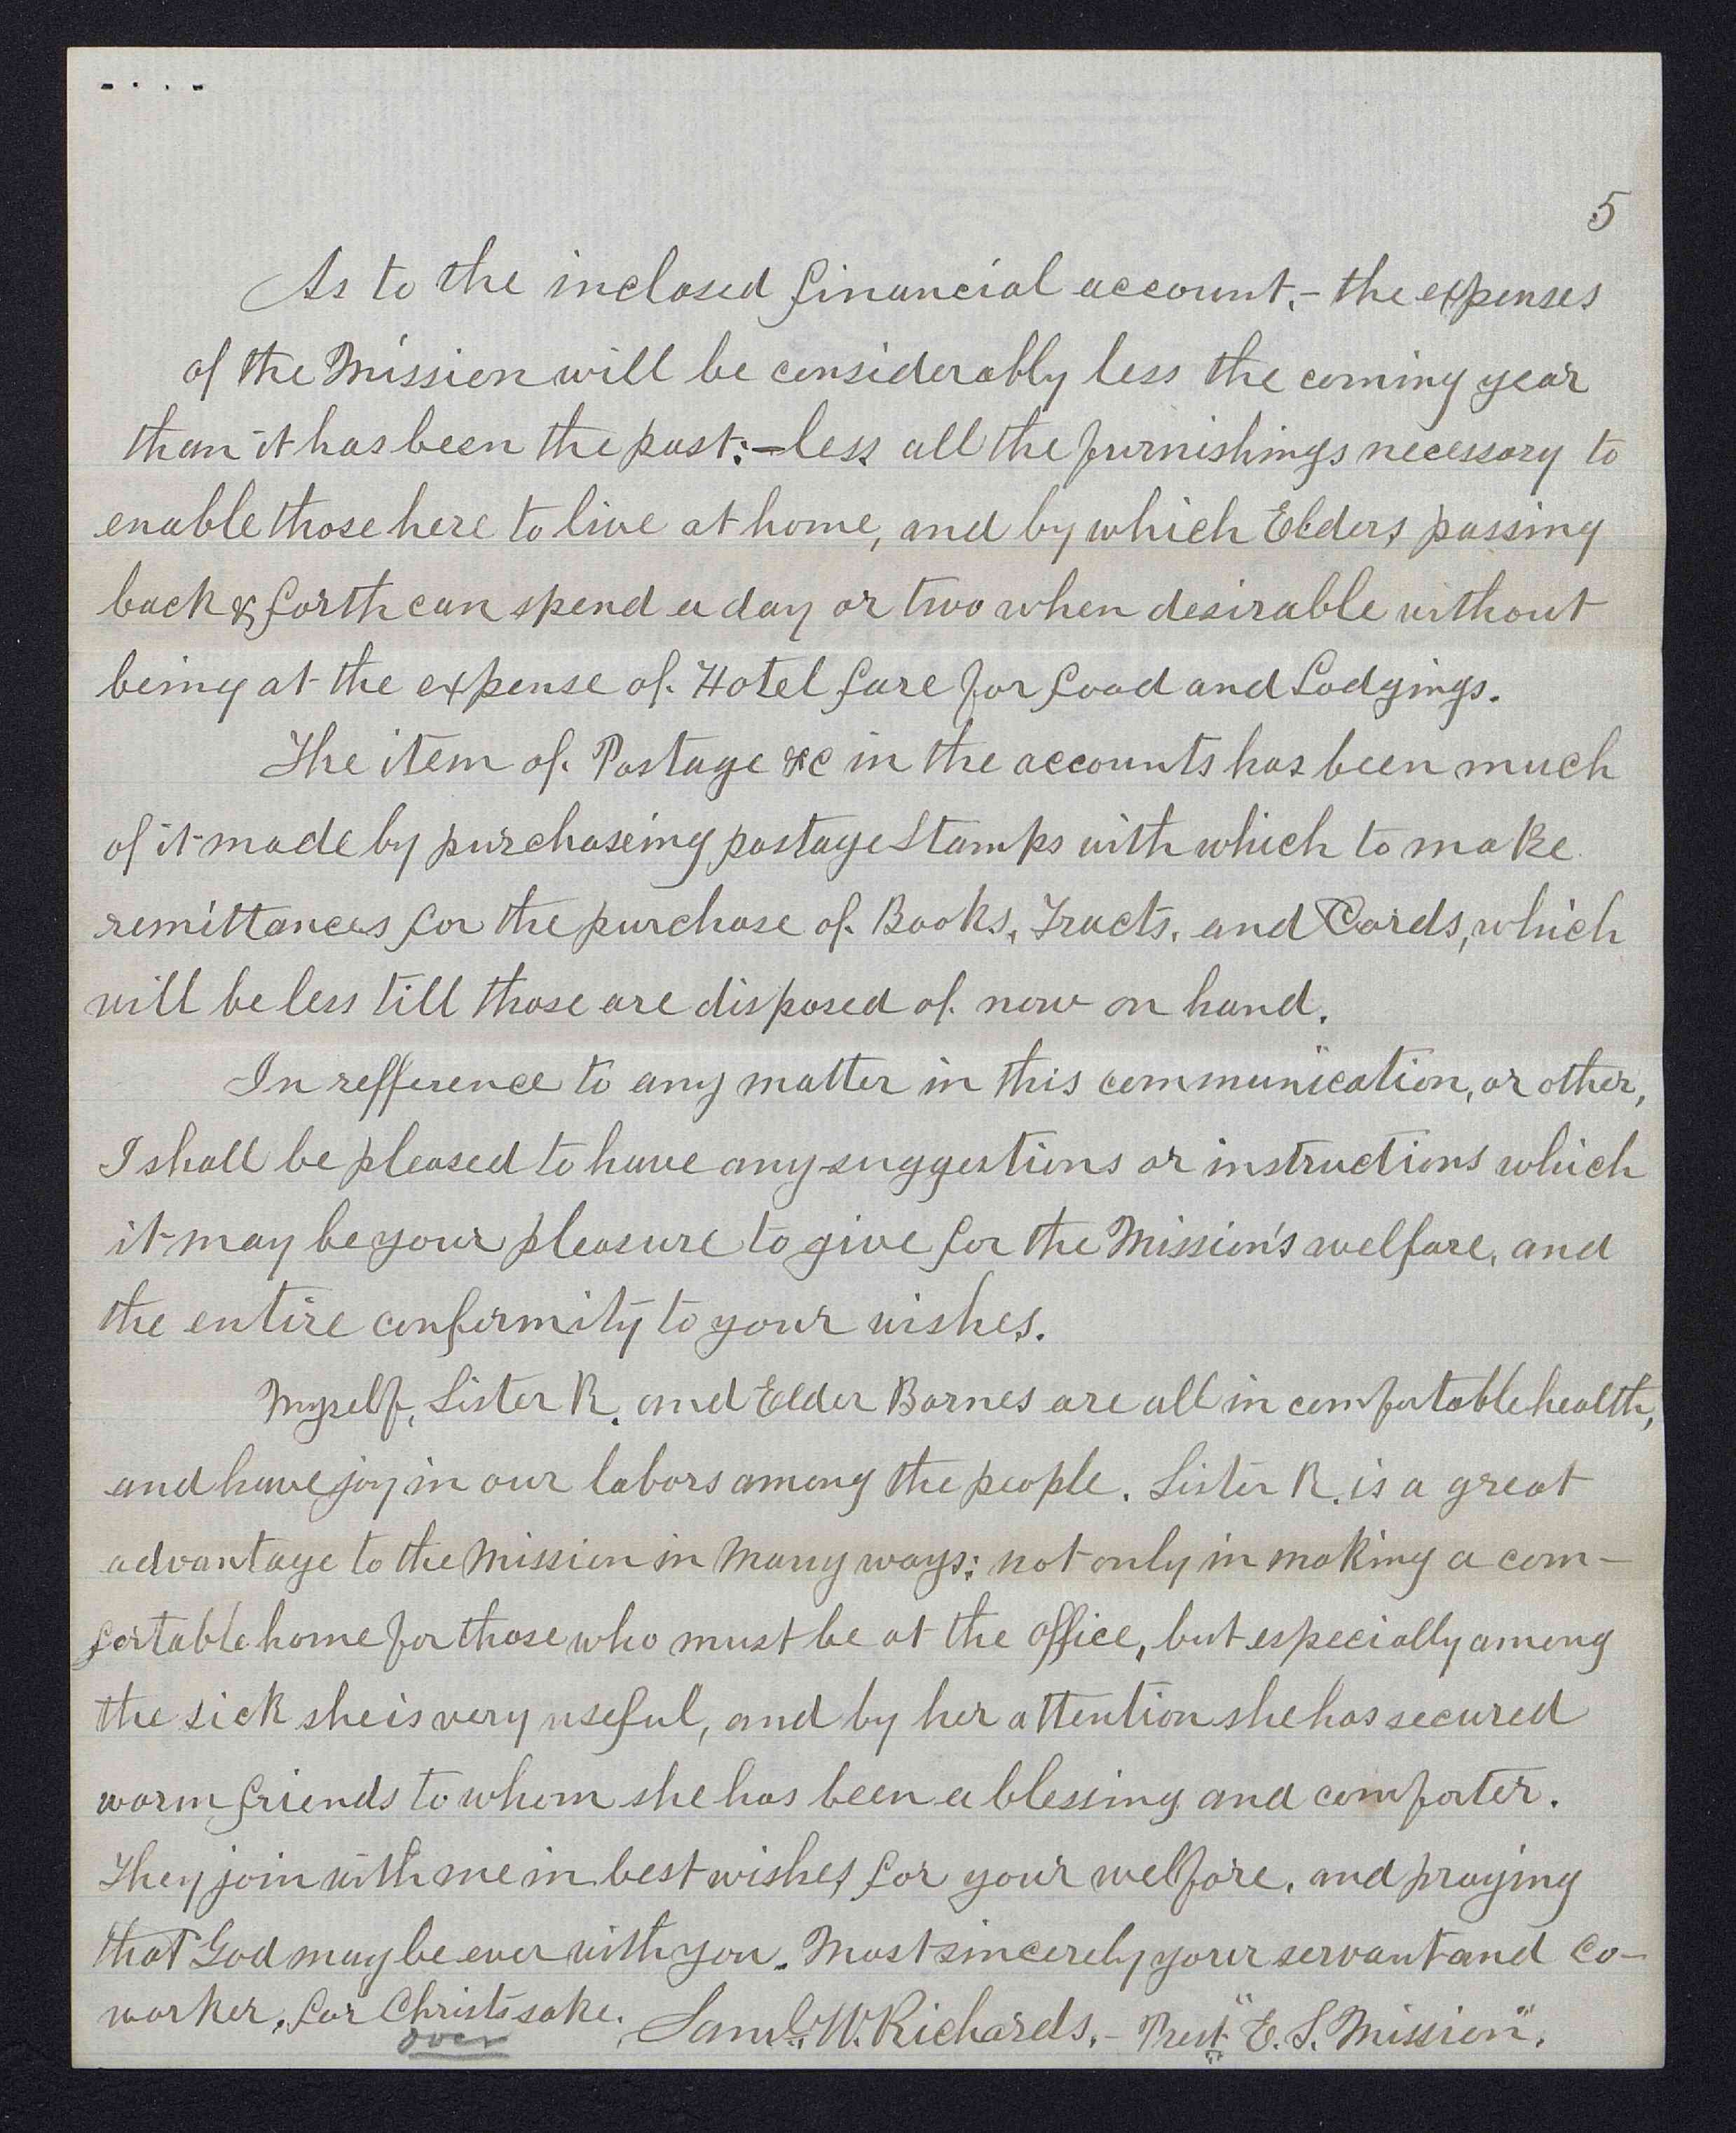 5
As to the inclosed financial account,- the expenses
of the Mission will be considerably less the coming year
than it has been the past:-less all the furnishings necessary to
enable those here to live at home, and by which Elders passing
back & forth can spend a day or two when desirable without
being at the expense of Hotel fare for food and Lodgings.
The item of Postage &c in the accounts has been much
of it made by purchaseing postage Stamps with which to make
remittances for the purchase of Books, Tracts, and Cards, which
will be less till those are disposed of now on hand.
In refference to any matter in this communication, or other,
I shall be pleased to have any suggestions or instructions which
it may be your pleasure to give for the Mission's welfare, and
the entire conformity to your wishes.
Myself, Sister R. and Elder Barnes are all in comfortable health,
and have joy in our labors among the people. Sister R. is a great
advantage to the Mission in many ways: not only in making a com-
fortable home for those who must be at the office, but especially among
the sick she is very useful, and by her attention she has secured
warm friends to whom she has been a blessing and comforter.
They join with me in best wishes for your welfare, and praying
that God may be ever with you. Most sincerely your servant and Co-
worker, for Christs sake. Saml. W. Richards,- Prest "E. S. Mission".
over